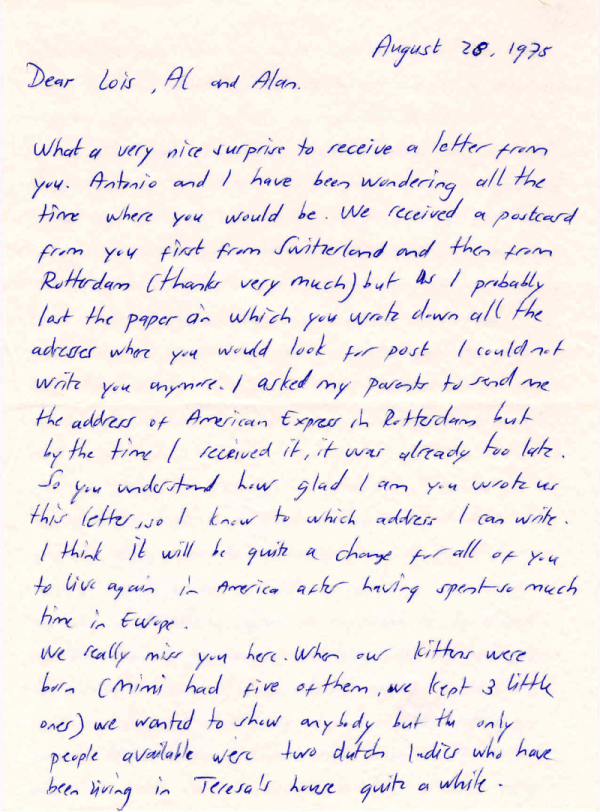 August 28, 1975
Dear Lois, Al and Alan.
What a very nice surprise to receive a letter from
you. Antonio and I have been wondering all the
time where you would be. We received a postcard
from you first from Switzerland and then from
Rotterdam (thanks very much) but as I probably
lost the paper on which you wrote down all the
adresses where you would look for post I could not
write you anymore. I asked my parents to send me
the address of American Express in Rotterdam but
by the time I received it, it was already too late.
So you understand how glad I am you wrote us
this letter, so I know to which address I can write.
I think it will be quite a change for all of you
to live again in America after having spent so much
time in Europe.
We really miss you here. When our kittens were
born (Mimi had five of them, we kept 3 little
ones) we wanted to show anybody but the only
people available were two dutch ladies who have
been living in Teresa's house quite a while.